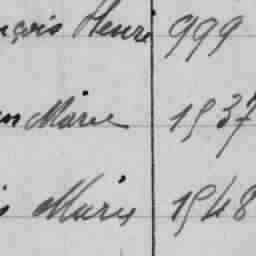 nçois Henri 999
an Marie 1537
s Marie 1548